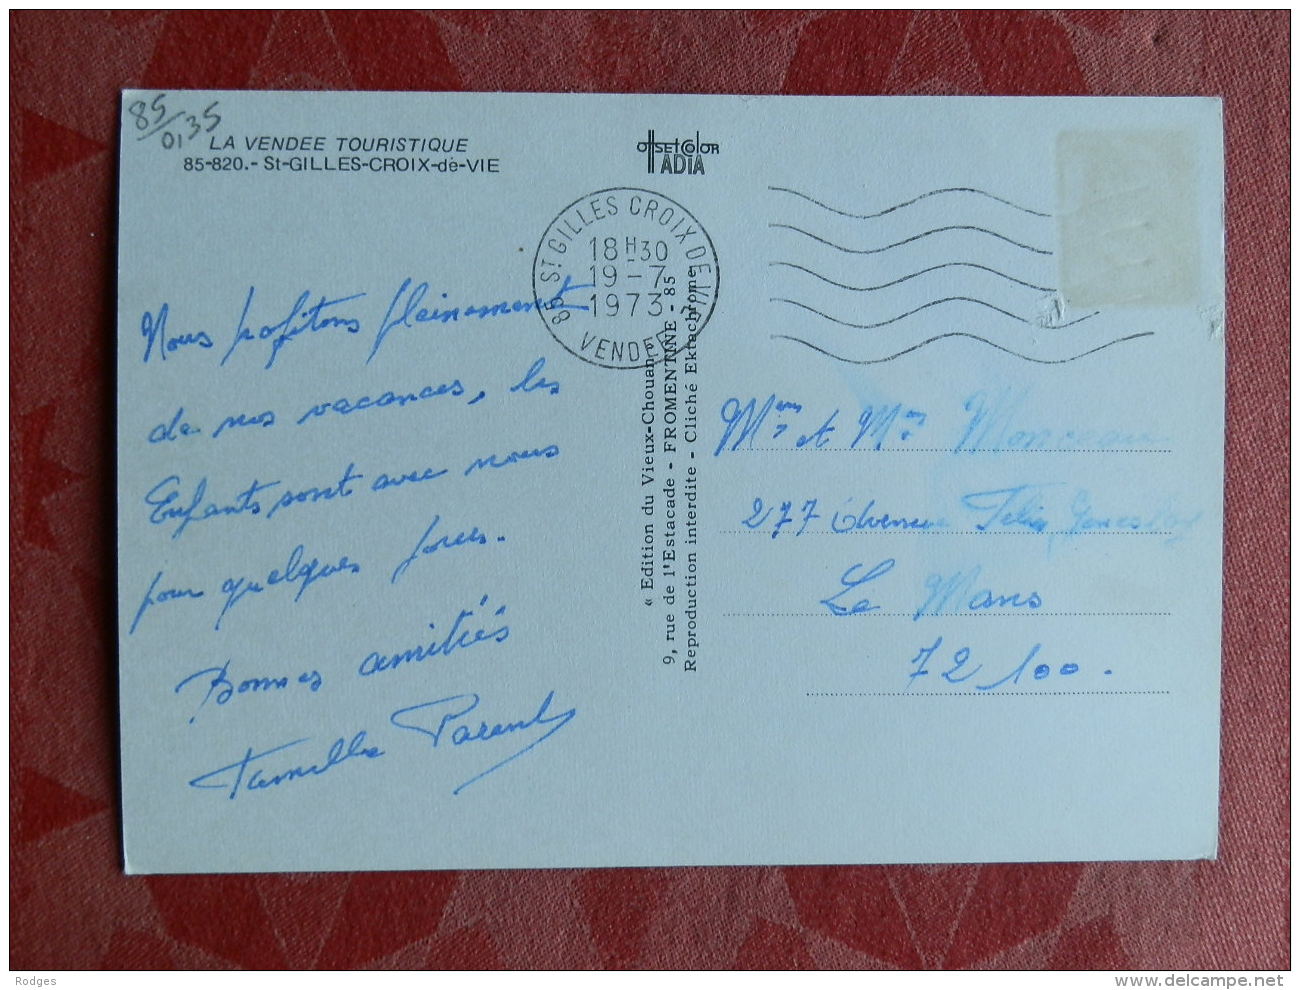 85/0135
LA VENDEE TOURISTIQUE
85-820.- St-GILLES-CROIX-de-VIE
offsetcolor
ADIA
85 ST GILLES CROIX DE VIE
18H30
19-7
1973
VENDEE
Nous profitons pleinement
de nos vacances, les
Enfants sont avec nous
pour quelques jours.
Bonnes amitiés
Famille Parent
« Edition du Vieux-Chouan »
9, rue de l'Estacade - FROMENTINE - 85
Reproduction interdite - Cliché Ektachrome
et
277 Avenue Félix Geneslay
Le Mans
72100.
Rodges
www.delcampe.net